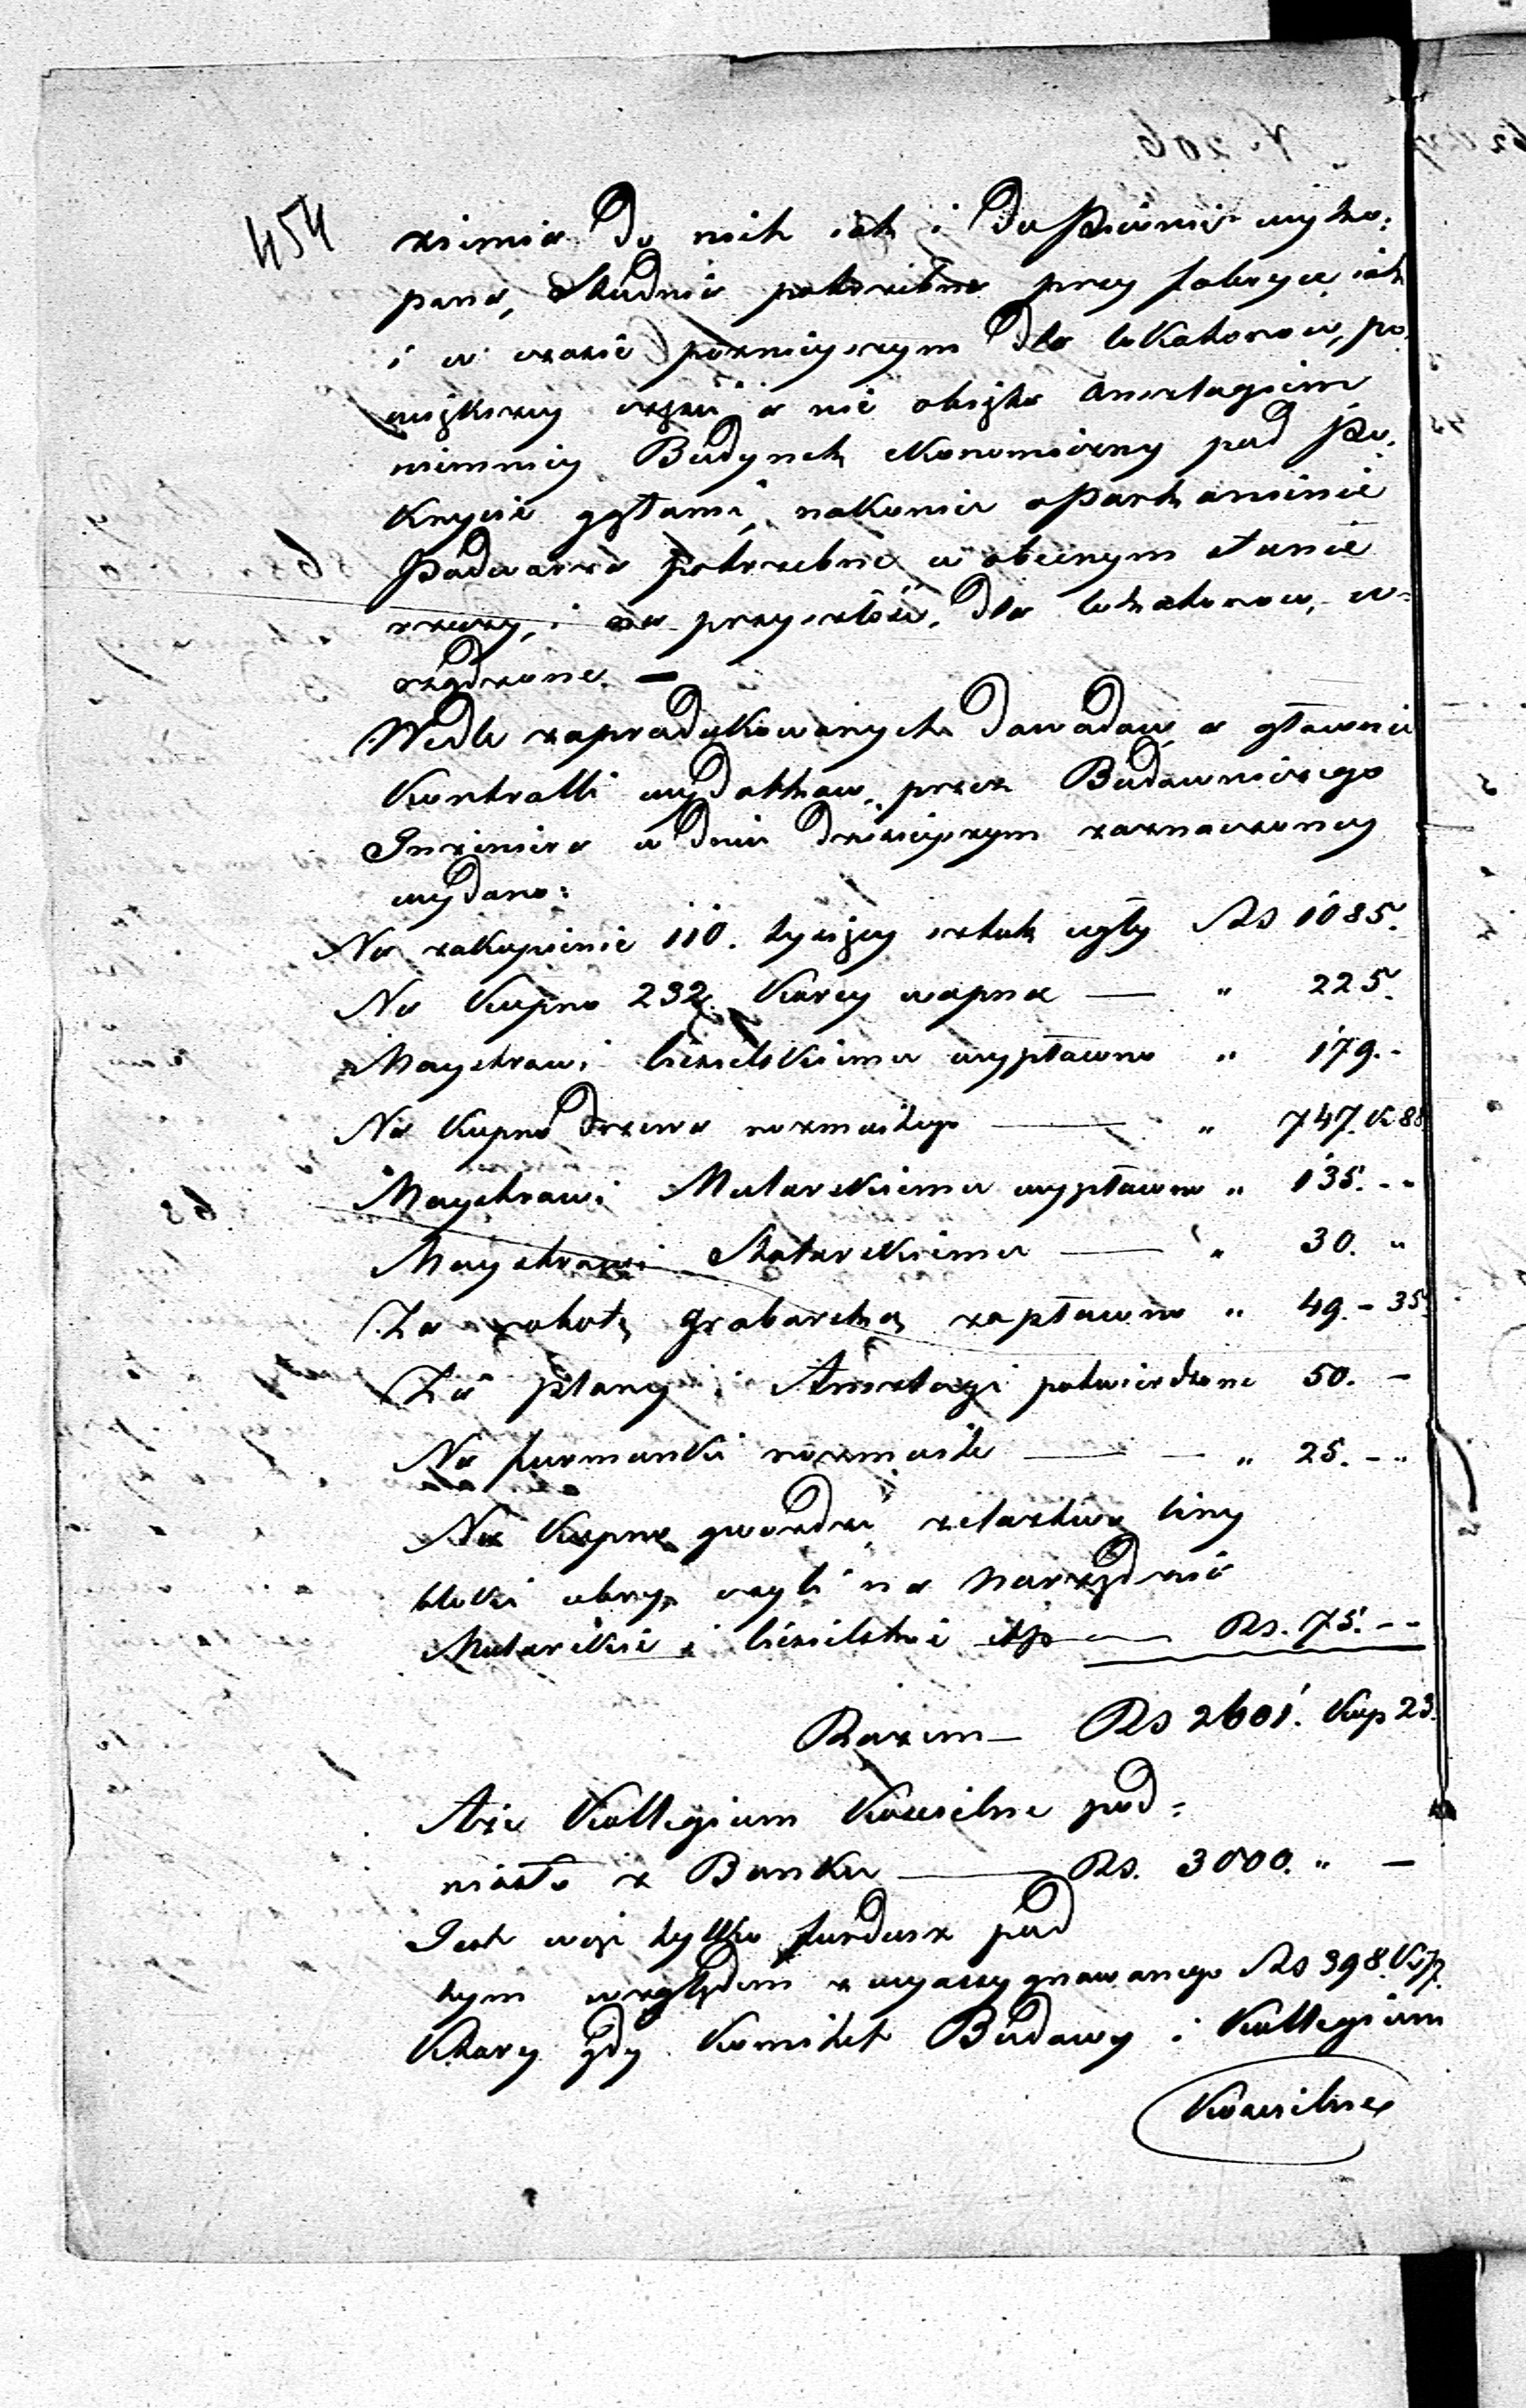 454
ziemia do nich jak i do Piwnic wyko:
pana, Studnia potrzebna przy fabryce jak
i w czasie poźniejszym dla lokatorow, po
większey części a nie objęta Anszlagiem
niemniey Budynek ekonomiczny pod Po:
krycie gątami, nakoniec oparkanienie
Podworza potrzebne w obecnym stanie
rzeczy, i na przyszłość dla lokatorow, u-
rządzone. —
Wedle zaprodukowanych dowodow, a głownie
Kontrolli wydatkow, przez Budowniczego
Inziniera w dniu dzisieyszym zaznaczoney
wydano:
Na zakupienie 110. tysięcy sztuk cegły Rs 1085.
Na Kupno 232. Korcy wapna — " 225.
Maystrowi Ciesielskiemu wypłacono " 179.-
Na Kupno drzewa rozmaitego — " 747. K 88
Maystrowi Mularskiemu wypłacono " 135. - -
Maystrowi Stolarskiemu — " 30. "
Za robotę grabarską zapłacono " 49. - 35
Za plany i Anszlagi potwierdzone 50. -
Na furmanki rozmaite — — " 25. - "
Na Kupno gwoździ żelaztwa liny
bloki obręcz czyli na Narzędzia
Mularskie i Ciesielskie itp — Rs. 75. - -
Razem — Rs 2601. Kop 23.
A że Kollegium Koscielne pod:
niosło z Banku — Rs. 3000. " —
Jest więc tylko fundusz pod
tym względem z wyassygnowanego Rs 398. K 77.
Ktory gdy Komitet Budowy i Kollegium
Koscielne